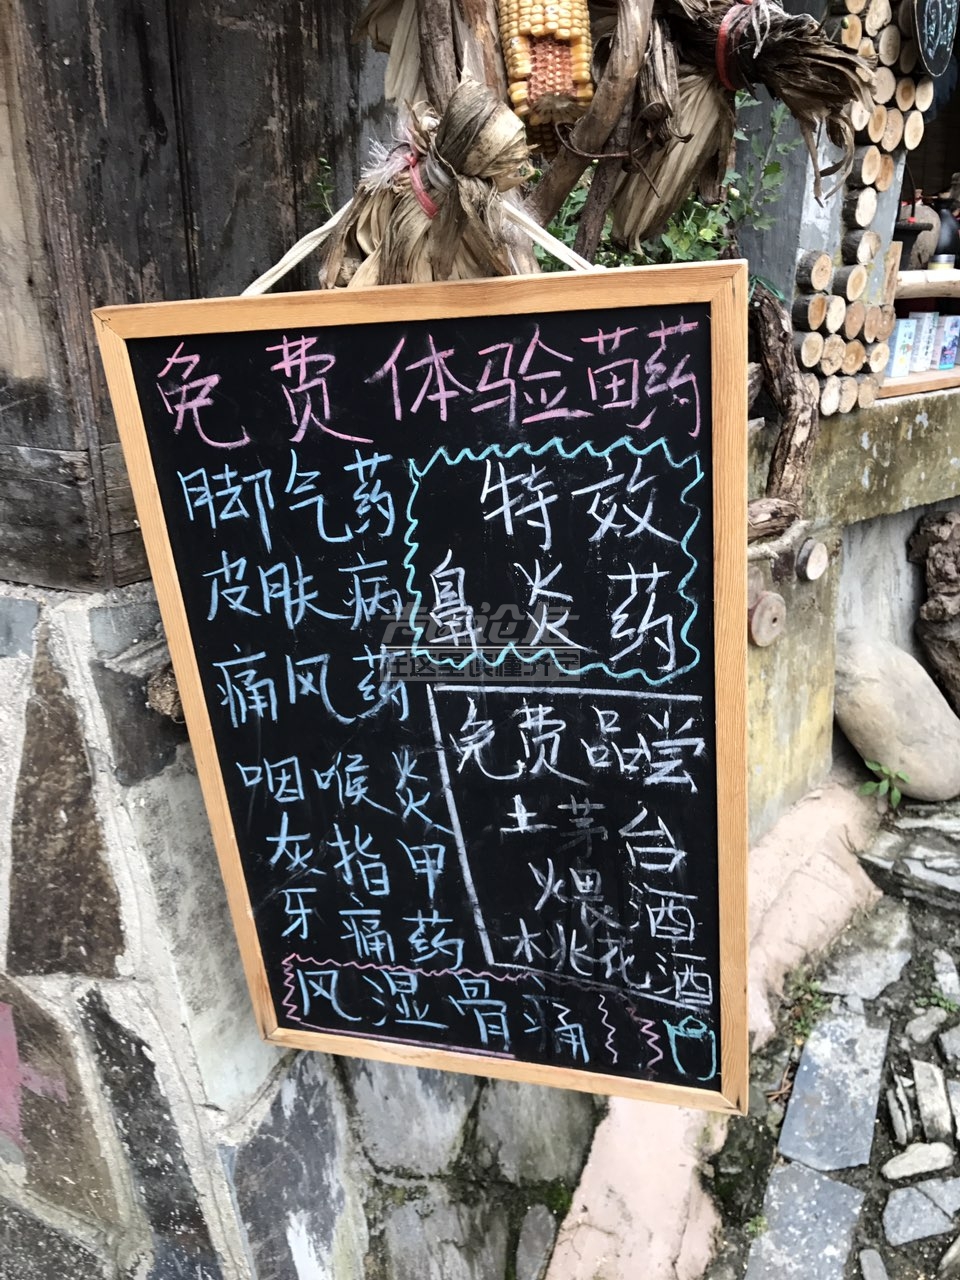 免费体验苗药
脚气药
皮肤病
痛风药
咽喉炎
灰指甲
牙痛药
特效
鼻炎药
免费品尝
土茅台
煨酒
木兆花酒
风湿骨痛
在这里读懂济宁